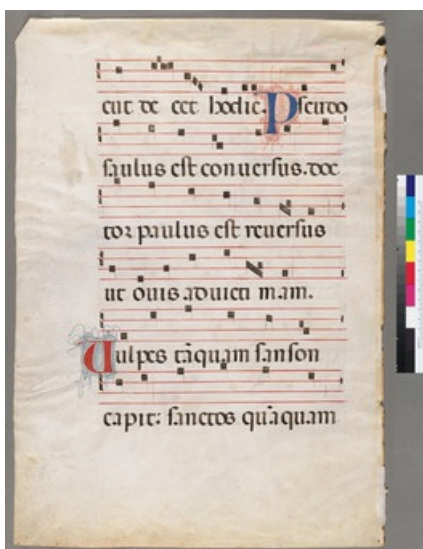 cut de cet hodie. Pseudo
saulus est conuersus. doc
tor paulus est reuersus
ut ouis ad uicti mam.
Uulpes tāquam sanson
capit: sanctos quaquam